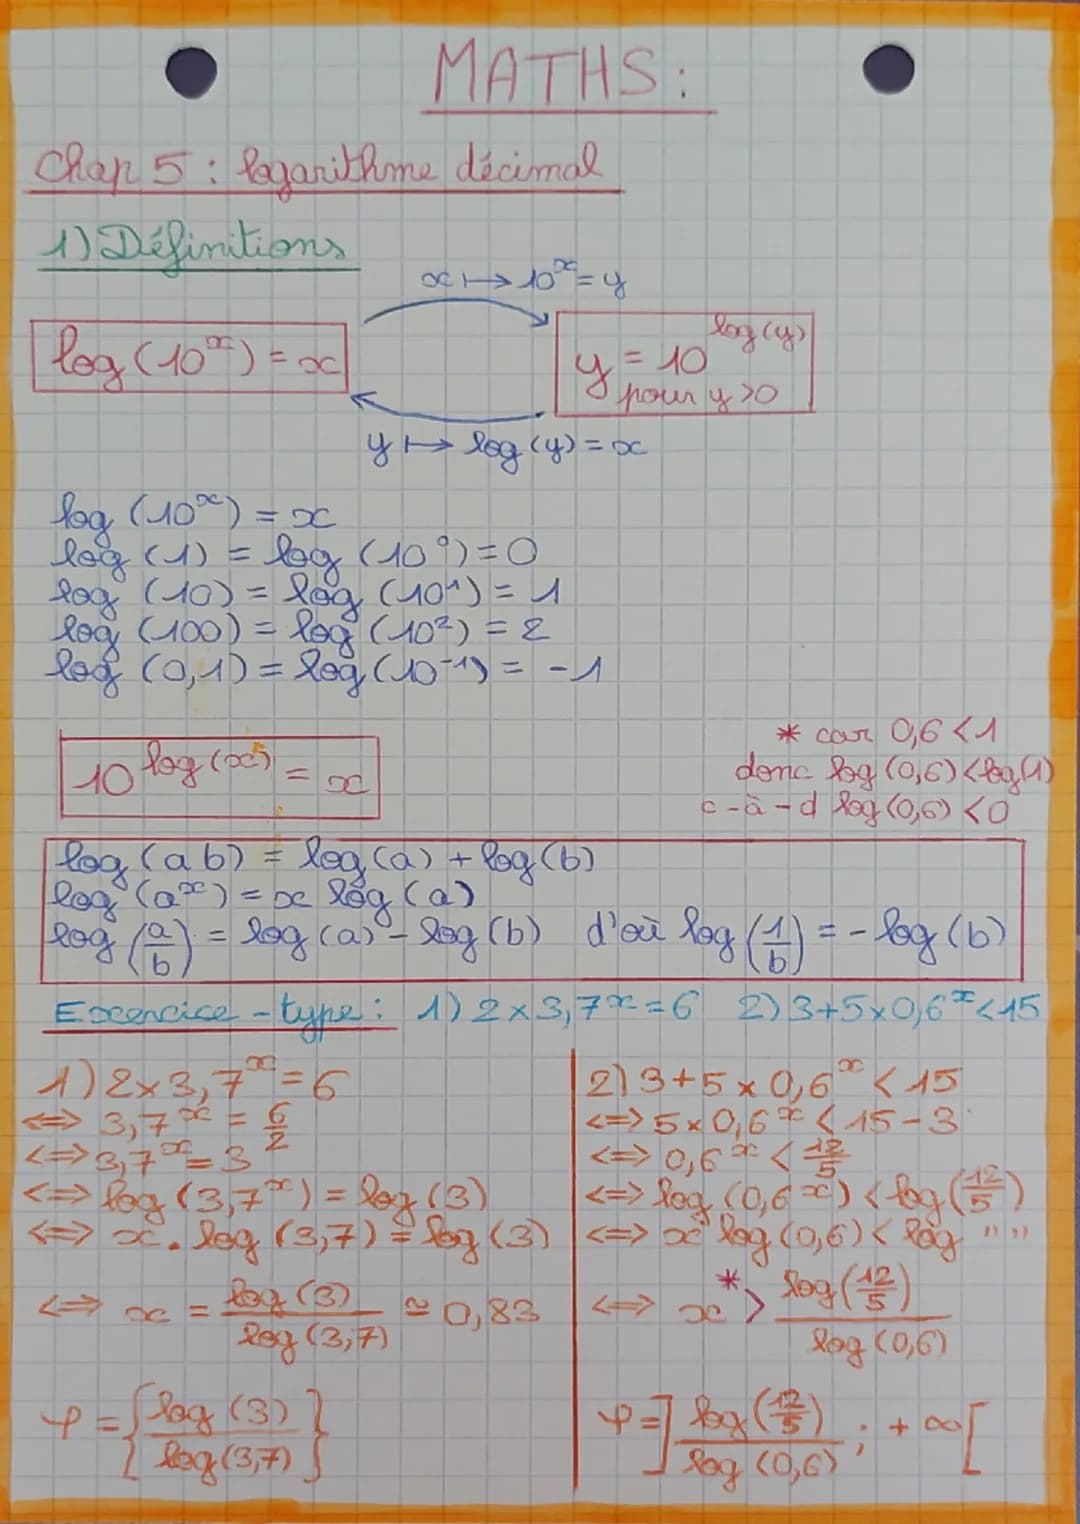 MATHS :
Chap 5 : logarithme décimal
1) Définitions
x ↦ 10^x = y
log (10^x) = x
y = 10^log(y)
pour y > 0
y ↦ log (y) = x
log (10^x) = x
log (1) = log (10^0) = 0
log (10) = log (10^1) = 1
log (100) = log (10^2) = 2
log (0,1) = log (10^-1) = -1
10^log(x) = x
* car 0,6 < 1
donc log (0,6) < log(1)
c-à-d log (0,6) < 0
log (ab) = log (a) + log (b)
log (a^x) = x log (a)
log (a/b) = log (a) - log (b) d'où log (1/b) = - log (b)
Exercice - type : 1) 2 × 3,7^x = 6 2) 3 + 5 × 0,6^x < 15
1) 2 × 3,7^x = 6
⟺ 3,7^x = 6/2
⟺ 3,7^x = 3
⟺ log (3,7^x) = log (3)
⟺ x . log (3,7) = log (3)
⟺ x = log (3) / log (3,7) ≃ 0,83
φ = { log (3) / log (3,7) }
2) 3 + 5 × 0,6^x < 15
⟺ 5 × 0,6^x < 15 - 3
⟺ 0,6^x < 12/5
⟺ log (0,6^x) < log (12/5)
⟺ x log (0,6) < log " "
⟺ x >* log (12/5) / log (0,6)
φ = ] log (12/5) / log (0,6) ; + ∞ [